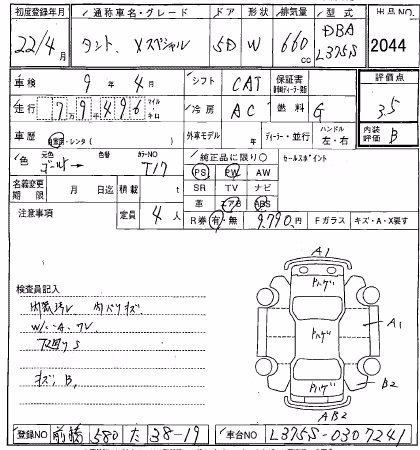 初度登録年月 通称車名・グレード ドア 形状 排気量 型式 出品NO
22/4月 タント、Xスペシャル 5D W 660cc DBA L375S 2044
車検 9年 4月 シフト CAT 保証書 評価点
走行 79,496 マイル キロ 冷房 AC 燃料 G 3.5
車歴 自家用・レンタ( ) 外車モデル 年 ディーラー・並行 ハンドル 左・右 内装評価 B
色 元色 ゴールド→ 色替 カラーNO T17 純正品に限り○ セールスポイント
PS PW AW
名義変更期限 月 日迄 積載 t SR TV ナビ
注意事項 定員 4人 革 エアB ABS
R券 有・無 9,790円 Fガラス キズ・A・X要す
A1
検査員記入
内装汚レ 内ハリキズ
ハゲ
A1
下廻りS
ハゲ
キズ、B、
ハゲ
B2
AB2
登録NO 前橋 580 た 38-19 車台NO L375S-0307241